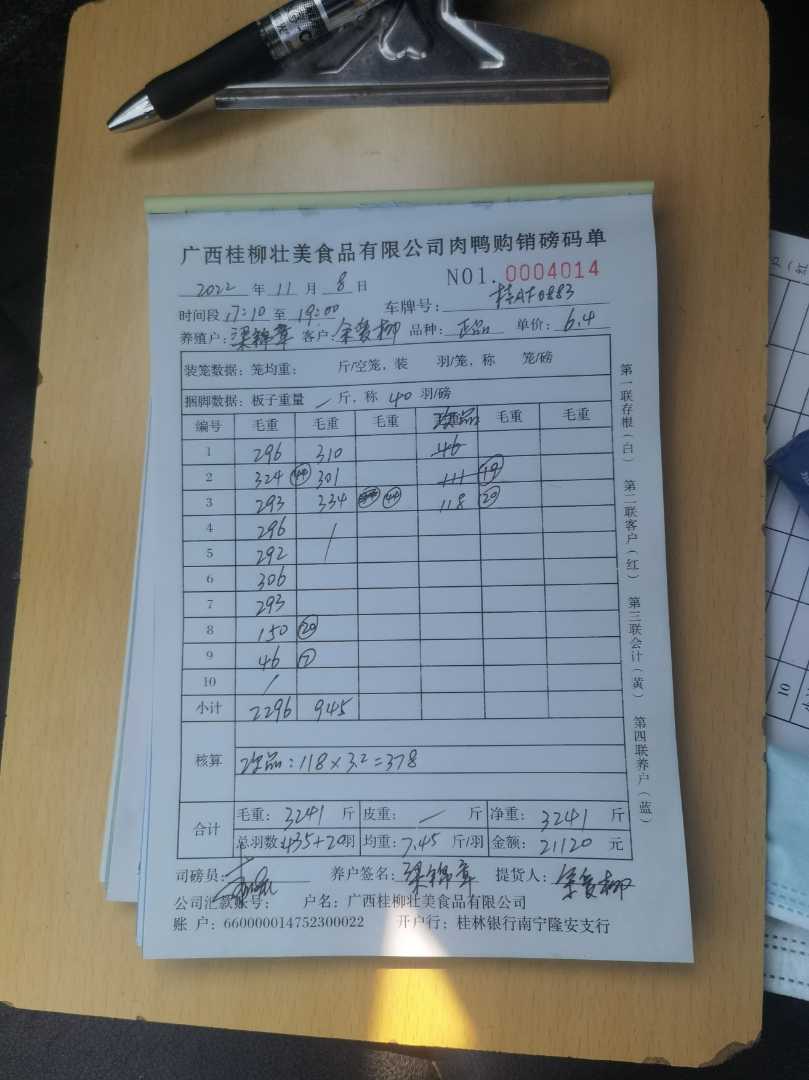 广西桂柳壮美食品有限公司肉鸭购销磅码单
2022 年 11 月 8 日 NO1. 0004014
时间段 17:10 至 19:00 车牌号: 桂AF0883
养殖户: 梁锦章 客户: 余爱柳 品种: 正品 单价: 6.4
装笼数据: 笼均重: 斤/空笼, 装 羽/笼, 称 笼/磅
捆脚数据: 板子重量 / 斤, 称 40 羽/磅
编号 毛重 毛重 毛重 次品 毛重 毛重
1 296 310 46
2 324 44 301 111 19
3 293 334 44 118 20
4 296 /
5 292
6 306
7 293
8 150 20
9 46 7
10 /
小计 2296 945
核算 次品: 118×3.2=378
合计 毛重: 3241 斤 皮重: / 斤 净重: 3241 斤
总羽数: 435+20羽 均重: 7.45 斤/羽 金额: 21120 元
司磅员: 养户签名: 梁锦章 提货人: 余爱柳
公司汇款账号: 户名: 广西桂柳壮美食品有限公司
账 户: 660000014752300022 开户行: 桂林银行南宁隆安支行
第一联存根(白) 第二联客户(红) 第三联会计(黄) 第四联养户(蓝)
10